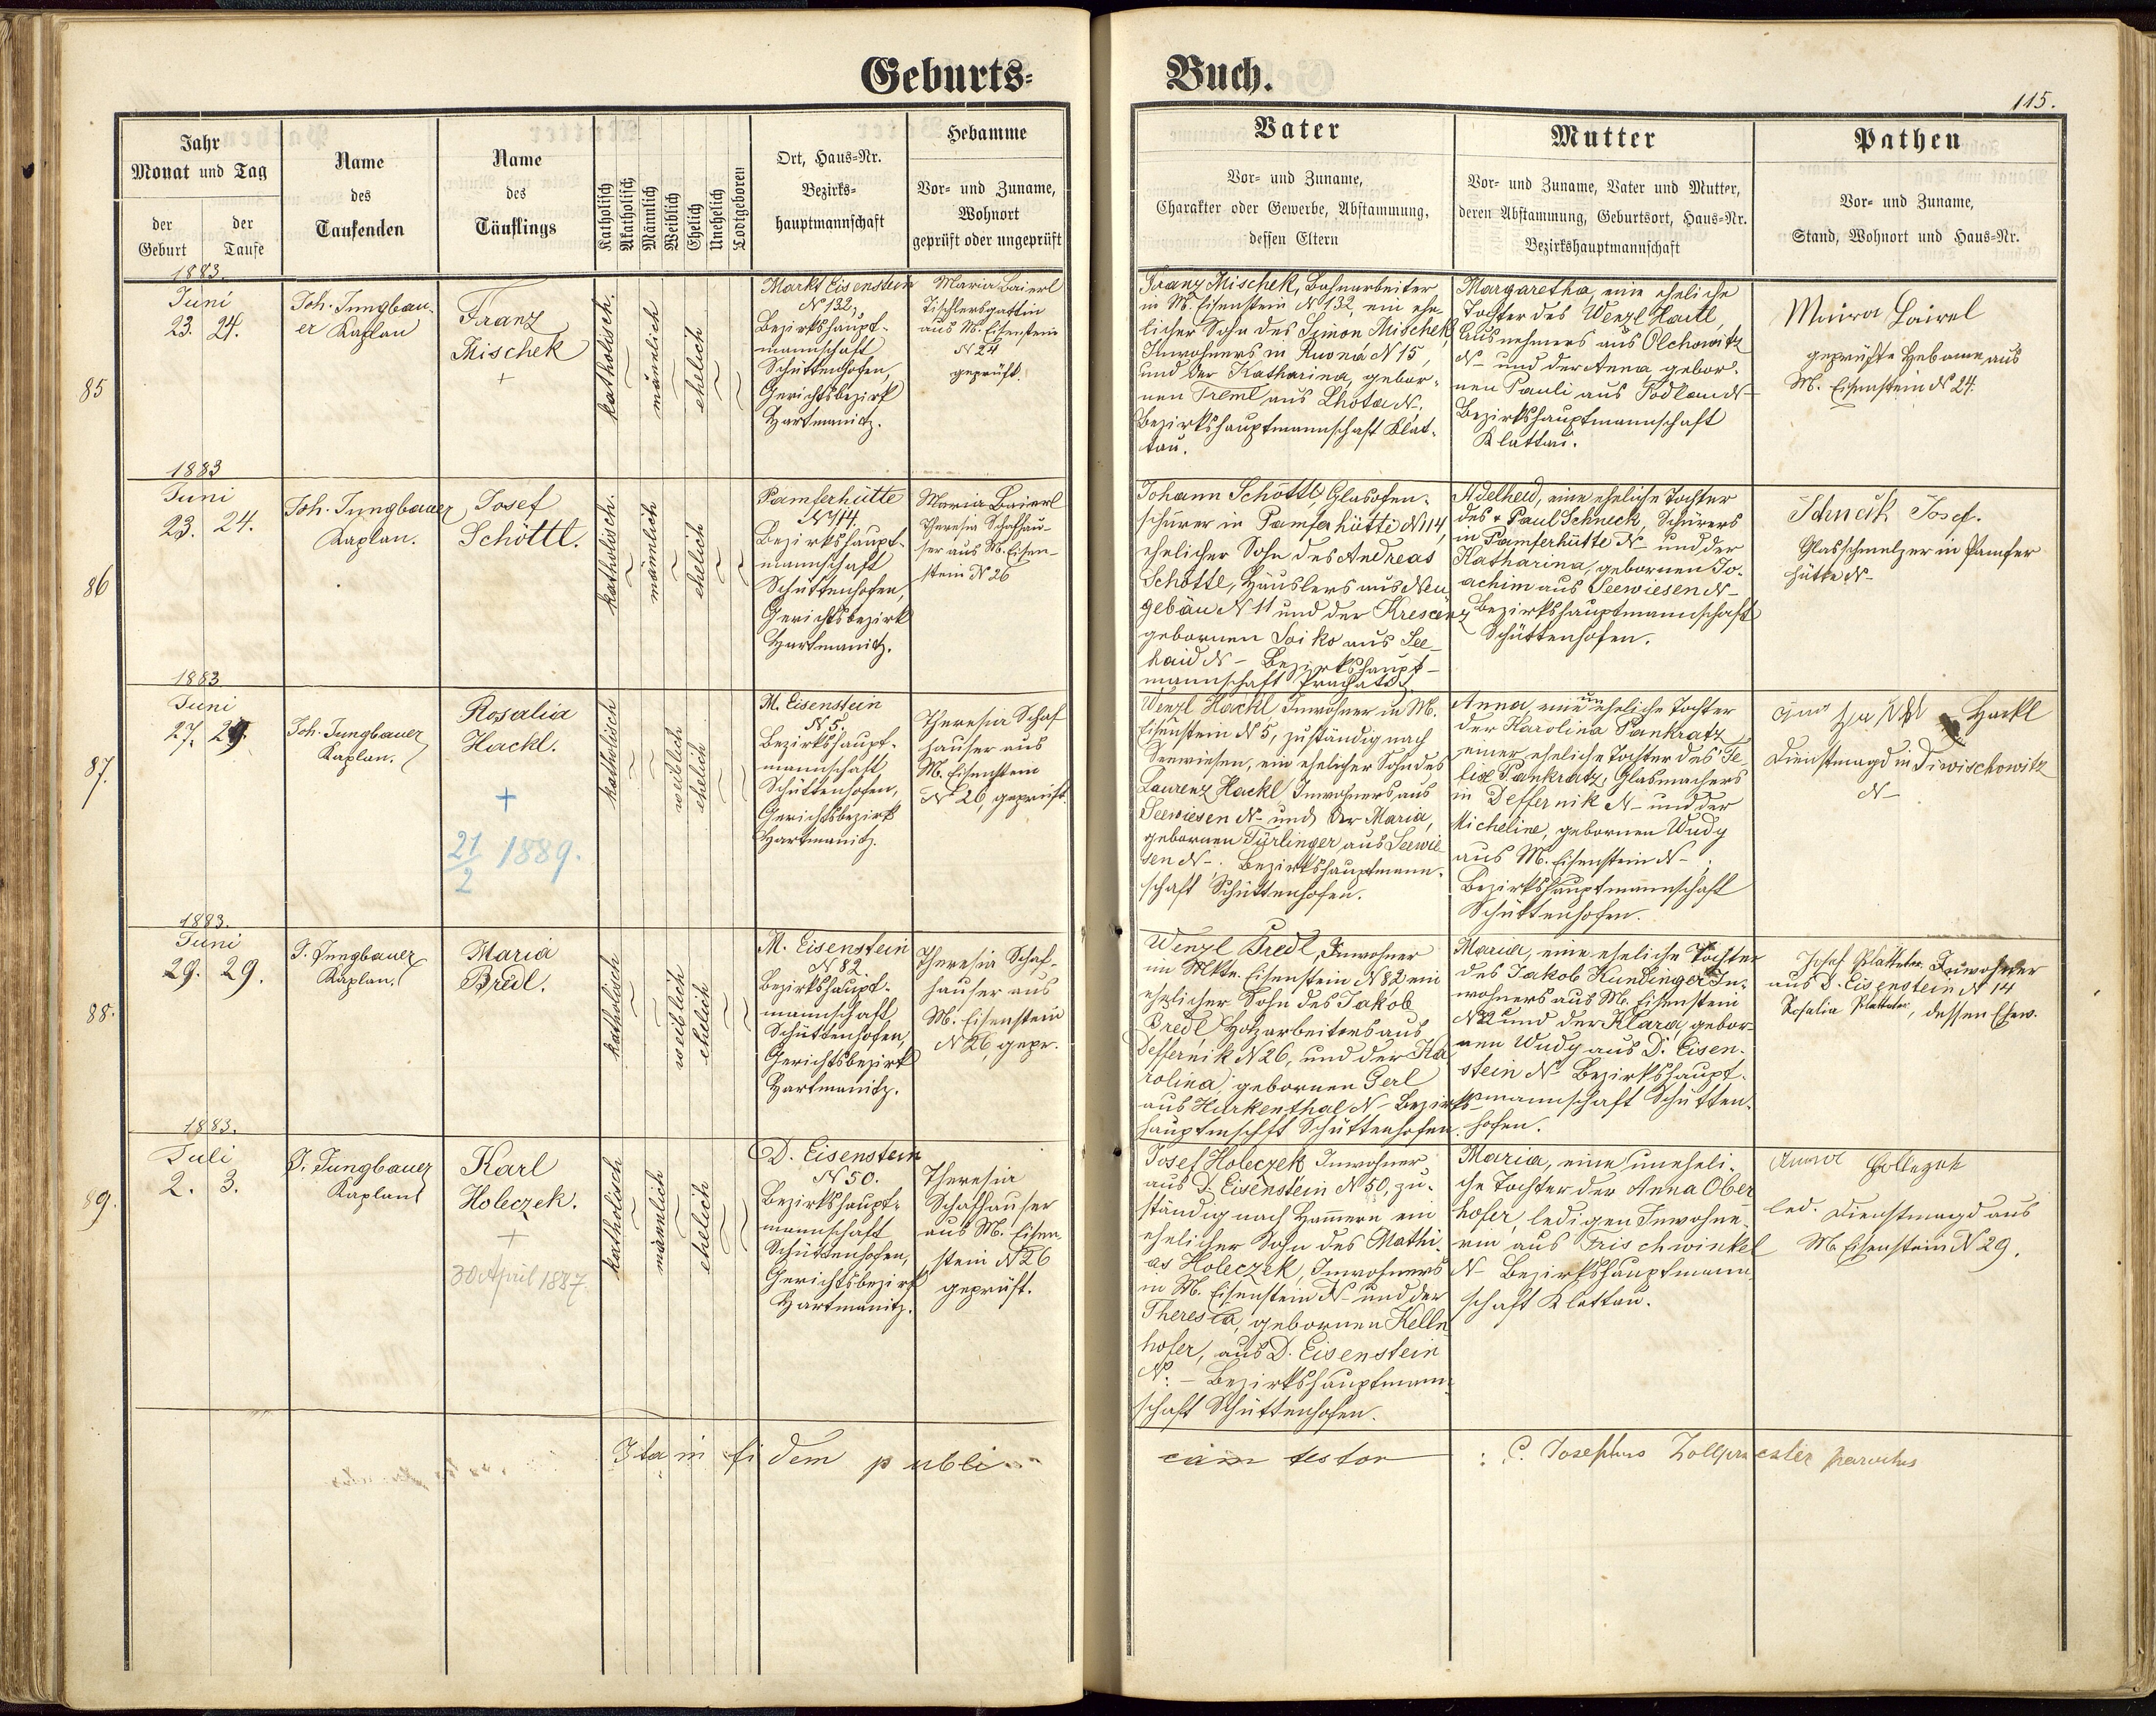 Geburts-
Buch.
115.
Jahr
Monat und Tag
der Geburt
der Taufe
Name
des
Taufenden
Name
des
Täuflings
Katholisch
Akatholisch
Männlich
Weiblich
Ehelich
Unehelich
Todtgeboren
Ort, Haus-Nr.
Bezirks-
hauptmannschaft
Hebamme
Vor- und Zuname,
Wohnort
geprüft oder ungeprüft
Vater
Vor- und Zuname,
Charakter oder Gewerbe, Abstammung,
dessen Eltern
Mutter
Vor- und Zuname, Vater und Mutter,
deren Abstammung, Geburtsort, Haus-Nr.
Bezirkshauptmannschaft
Pathen
Vor- und Zuname,
Stand, Wohnort und Haus-Nr.
85
1883.
Juni
23. 24.
Joh. Jungbau-
er Kaplan
Franz
Mischek
+
katholisch.
männlich
ehelich
Markt Eisenstein
N 132,
Bezirkshaupt-
mannschaft
Schüttenhofen,
Gerichtsbezirk
Hartmanitz.
Maria Baierl
Tischlersgattin
aus M. Eisenstein
N 24
geprüft.
Franz Mischek, Bahnarbeiter
in M. Eisenstein N 132, ein ehe-
licher Sohn des Simon Mischek,
Inwohners in Ruona N 15,
und der Katharina, gebor-
nen Treml aus Lhota N-.
Bezirkshauptmannschaft Klat-
tau.
Margaretha, eine eheliche
Tochter des Wenzl Hartl,
Ausnehmers aus Olchowitz
N- und der Anna, gebor-
nen Pauli aus Podlan N-
Bezirkshauptmannschaft
Klattau.
geprüfte Hebame aus
M. Eisenstein N 24.
86
1883
Juni
23. 24.
Joh. Jungbauer
Kaplan.
Josef
Schöttl.
katholisch.
männlich
ehelich
Pamferhütte
N 114.
Bezirkshaupt-
mannschaft
Schüttenhofen,
Gerichtsbezirk
Hartmanitz.
Maria Baierl
Theresia Schafhau-
ser aus M. Eisen-
stein N 26
Johann Schöttl, Glasofen-
schürer in Pamferhütte N 114,
ehelicher Sohn des Andreas
Schöttl, Häuslers aus Neu
gebäu N 11 und der Krescenz
gebornen Soiko aus See-
haid N - Bezirkshaupt-
mannschaft Prachatitz.
Adelheid, eine eheliche Tochter
des + Paul Schneck, Schürers
in Pamferhütte N- und der
Katharina, gebornen Jo-
achim aus Seewiesen N-
Bezirkshauptmannschaft
Schüttenhofen.
Schneck Josef.
Glasschmelzer in Pamfer
hütte N-
87.
1883
Juni
27. 29.
Joh. Jungbauer
Kaplan.
Rosalia
Hackl.
+
21/2 1889.
katholisch
weiblich
ehelich
M. Eisenstein
N 5,
Bezirkshaupt-
mannschaft
Schüttenhofen,
Gerichtsbezirk
Hartmanitz.
Theresia Schaf
hauser aus
M. Eisenstein
N 26, geprüft.
Wenzl Hackl Inwohner in M.
Eisenstein N 5, zuständig nach
Seewiesen, ein ehelicher Sohn des
Laurenz Hackl Inwohners aus
Seewiesen N- und der Maria,
gebornen Türlinger aus Seewie
sen N-. Bezirkshauptmann-
schaft Schüttenhofen.
Anna, eine uneheliche Tochter
der Karolina Pankratz
einer eheliche Tochter des Fe
lix Pankratz, Glasmachers
in Deffernik N- und der
Micheline, gebornen Wudy
aus M. Eisenstein N-.
Bezirkshauptmannschaft
Schüttenhofen.
Hackl
Dienstmagd in Diwischowitz
N-
88.
1883.
Juni
29. 29.
J. Jungbauer
Kaplan.
Maria
Bredl.
katholisch
weiblich
ehelich
M. Eisenstein
N 82
Bezirkshaupt-
mannschaft
Schüttenhofen,
Gerichtsbezirk
Hartmanitz.
Theresia Schaf-
hauser aus
M. Eisenstein
N 26, gepr.
Wenzl Bredl, Inwohner
im Mkte. Eisenstein N 82 ein
ehelicher Sohn des Jakob
Bredl Holzarbeiters aus
Deffernik N 26, und der Ka
rolina gebornen Gerl
aus Hurkenthal N- Bezirks
hauptmschft Schüttenhofen.
Maria, eine eheliche Tochter
des Jakob Kundinger In-
wohners aus M. Eisenstein
N 22 und der Klara, gebor-
nen Wudy aus D. Eisen-
stein N- Bezirkshaupt-
mannschaft Schütten-
hofen.
Josef Blatterer Inwohner
aus D. Eisenstein N 14
Rosalia Blatterer, dessen Ehew.
89.
1883.
Juli
2. 3.
J. Jungbauer
Kaplan
Karl
Holeczek.
+
30 April 1887
katholisch
männlich
ehelich
D. Eisenstein
N 50.
Bezirkshaupt-
mannschaft
Schüttenhofen,
Gerichtsbezirk
Hartmanitz.
Theresia
Schafhauser
aus M. Eisen-
stein N 26
geprüft.
Josef Holeczek Inwohner
aus D. Eisenstein N 50, zu-
ständig nach Hammern ein
ehelicher Sohn des Mathi-
as Holeczek, Inwohners
in M. Eisenstein N- und der
Theresia, gebornen Kelln
hofer, aus D. Eisenstein
N. - Bezirkshauptmann-
schaft Schüttenhofen.
Maria, eine uneheli-
che Tochter der Anna Ober
hofer, ledigen Inwohne-
rin aus Frischwinkel
N- Bezirkshauptmann-
schaft Klattau.
Anna Hollezek
led. Dienstmagd aus
M. Eisenstein N 29.
Ita in fidem publicam testor : P. Josephus Zollpriester parochus